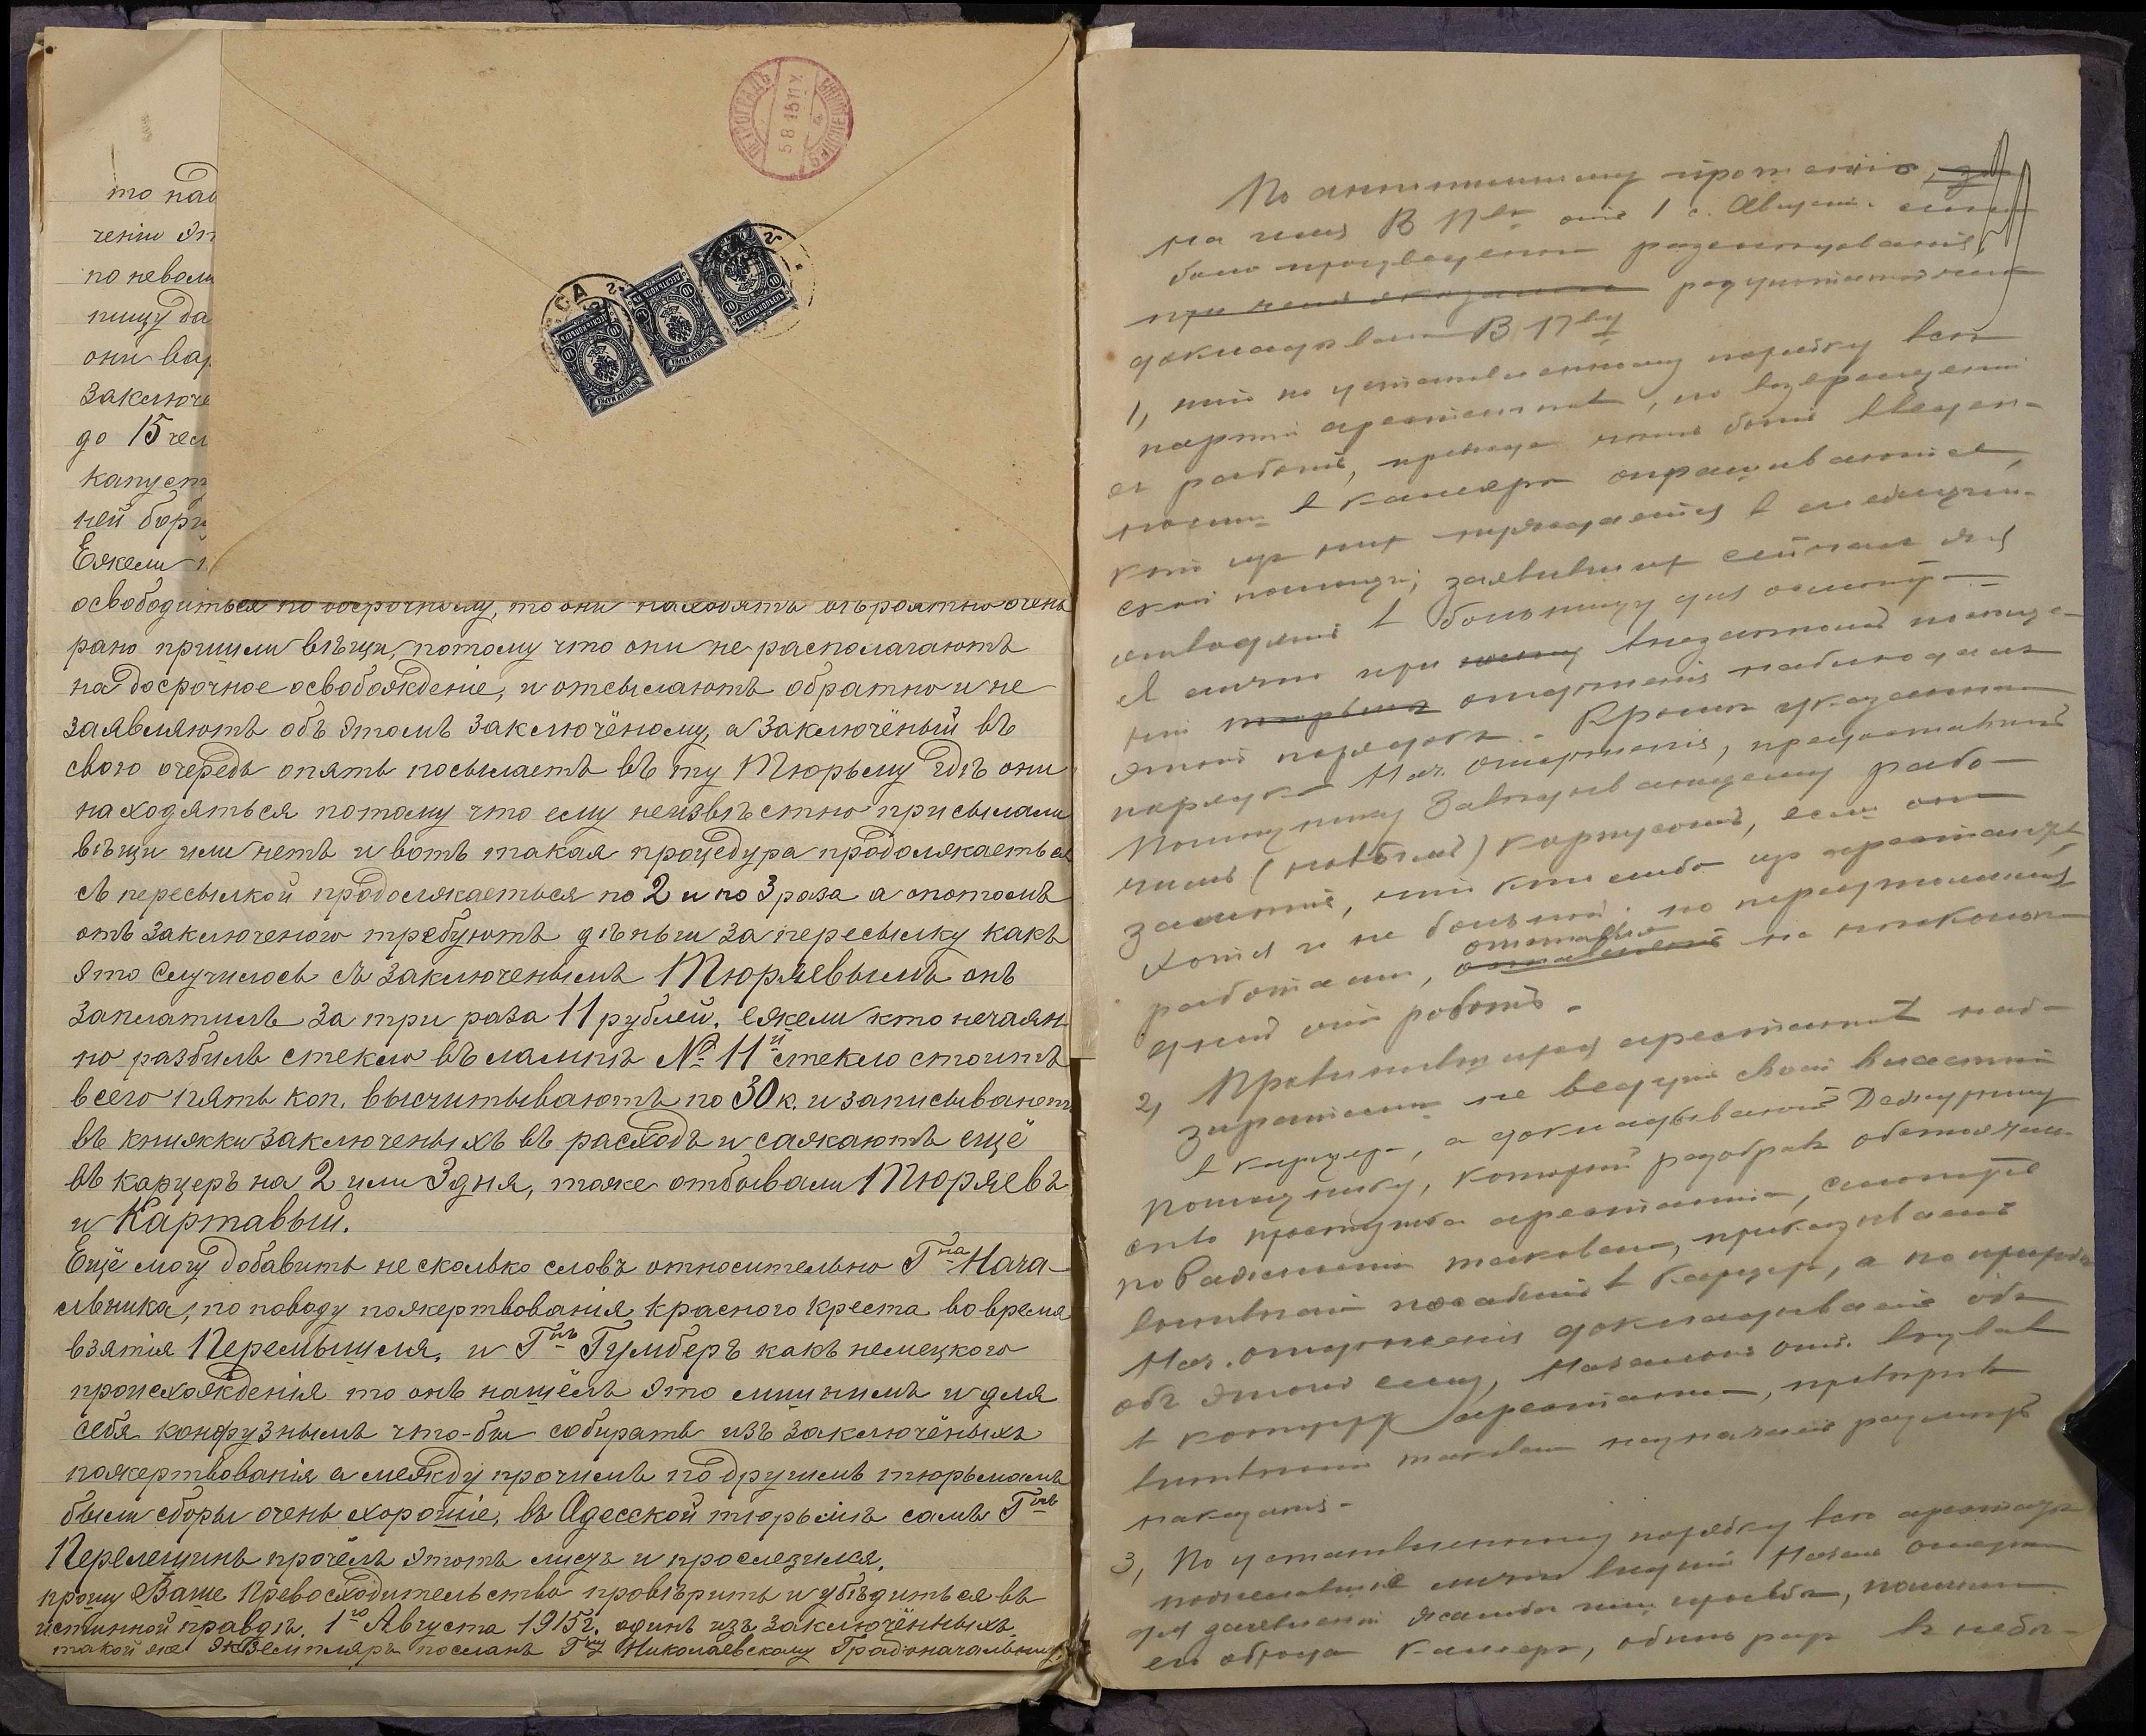 ПЕТРОГРАДЪ
5 8 15 11 У
то над
ченіи эт
поневоли
пищу да
они вар
заключе
до 15 чел
капуст
ней борщ
Ежели
освободиться по досрочному, то они находятъ вѣроятно очень
рано пришли вѣщи, потому что они не располагаютъ
на досрочное освобожденіе, и отсылаютъ обратно и не
заявляютъ объ этомъ заключёному, а заключёный въ
свою очередь опять посылаетъ въ ту Тюрьму гдѣ они
находяться потому что ему неизвѣстно присылали
вѣщи или нетъ и вотъ такая процедура продолжаеться
съ пересылкой продолжаеться по 2 и по 3 раза а опотомъ
отъ заключеного требуютъ дѣньги за пересылку какъ
это случилось съ заключенымъ Тюряевымъ онъ
заплатилъ за три раза 11 рублей. ежели кто нечаян
но разбилъ стекло въ лампѣ № 11й стекло стоитъ
всего пять коп. высчитываютъ по 30 к. и записываютъ
въ книжки заключеныхъ въ расходъ и сажаютъ ещё
въ карцеръ на 2 или 3 дня, тоже отбывали Тюряевъ
и Картавый.
Ещё могу добавить несколько словъ относительно Гна Нача-
льника, по поводу пожертвованія Красного Креста во время
взятія Перемышля. и Гнъ Гумберъ какъ немецкого
происхожденія то онъ нашёлъ это лишнимъ и для
себя конфузнымъ что-бы собирать изъ заключёныхъ
пожертвованія а между прочимъ по другимъ тюрьмамъ
были сборы очень хорошіе. въ Одесской тюрьмѣ самъ Гнъ
Перелешинъ прочёлъ этотъ листъ и прослезился.
прошу Ваше Превосходительство провѣрить и убѣдиться въ
истинной правдѣ. 1го Августа 1915 г. одинъ изъ заключённыхъ.
такой же экземпляръ посланъ Гну Николаевскому Градоначальнику.
По анонимному прошенію,
на имя В Пво отъ 1 с. Августа
было произведено разслѣдованіе,
докладываю В Пву
1, что по установленному порядку всѣ
партіи арестантовъ, по возвращеніи
съ работъ, прежде чѣмъ быть введен-
ными въ камеры опрашиваются,
кто изъ нихъ нуждается въ медицин-
ской помощи; заявившихъ сейчасъ же
отводятъ въ больницу для осмотра
Я лично при внезапномъ посеще-
ніи отдѣленія наблюдалъ
этотъ порядокъ. Кромѣ указаннаго
порядка Нач. отдѣленія, предоставилъ
Помощнику Завѣдывающему рабо-
чимъ (новымъ) корпусомъ, если онъ
замѣтитъ, что кто либо изъ арестантовъ,
хотя и не больной, но переутомленный
работами, оставлять на нѣсколько
дней отъ работъ.
2, Провинившихся арестантовъ над-
зиратели не ведутъ своей властью
въ карцеръ, а докладываютъ Дежурному
Помощнику, который разобравъ обстоятель-
ство проступка арестанта, смотря
по важности таковаго, приказываетъ
виновнаго посадить въ карцеръ, а по приходѣ
Нач. отдѣленія докладываетъ
объ этомъ ему, Начальникъ отд. вызвавъ
въ контору арестанта, провѣривъ
виновность таковаго назначаетъ размѣръ
наказанія.
3, По установленному порядку всѣ арестанты
пожелавшіе лично видѣть Начал. отдѣленія
для заявленія жалобы или просьбы, помимо
его обхода камеръ, одинъ разъ въ недѣ-